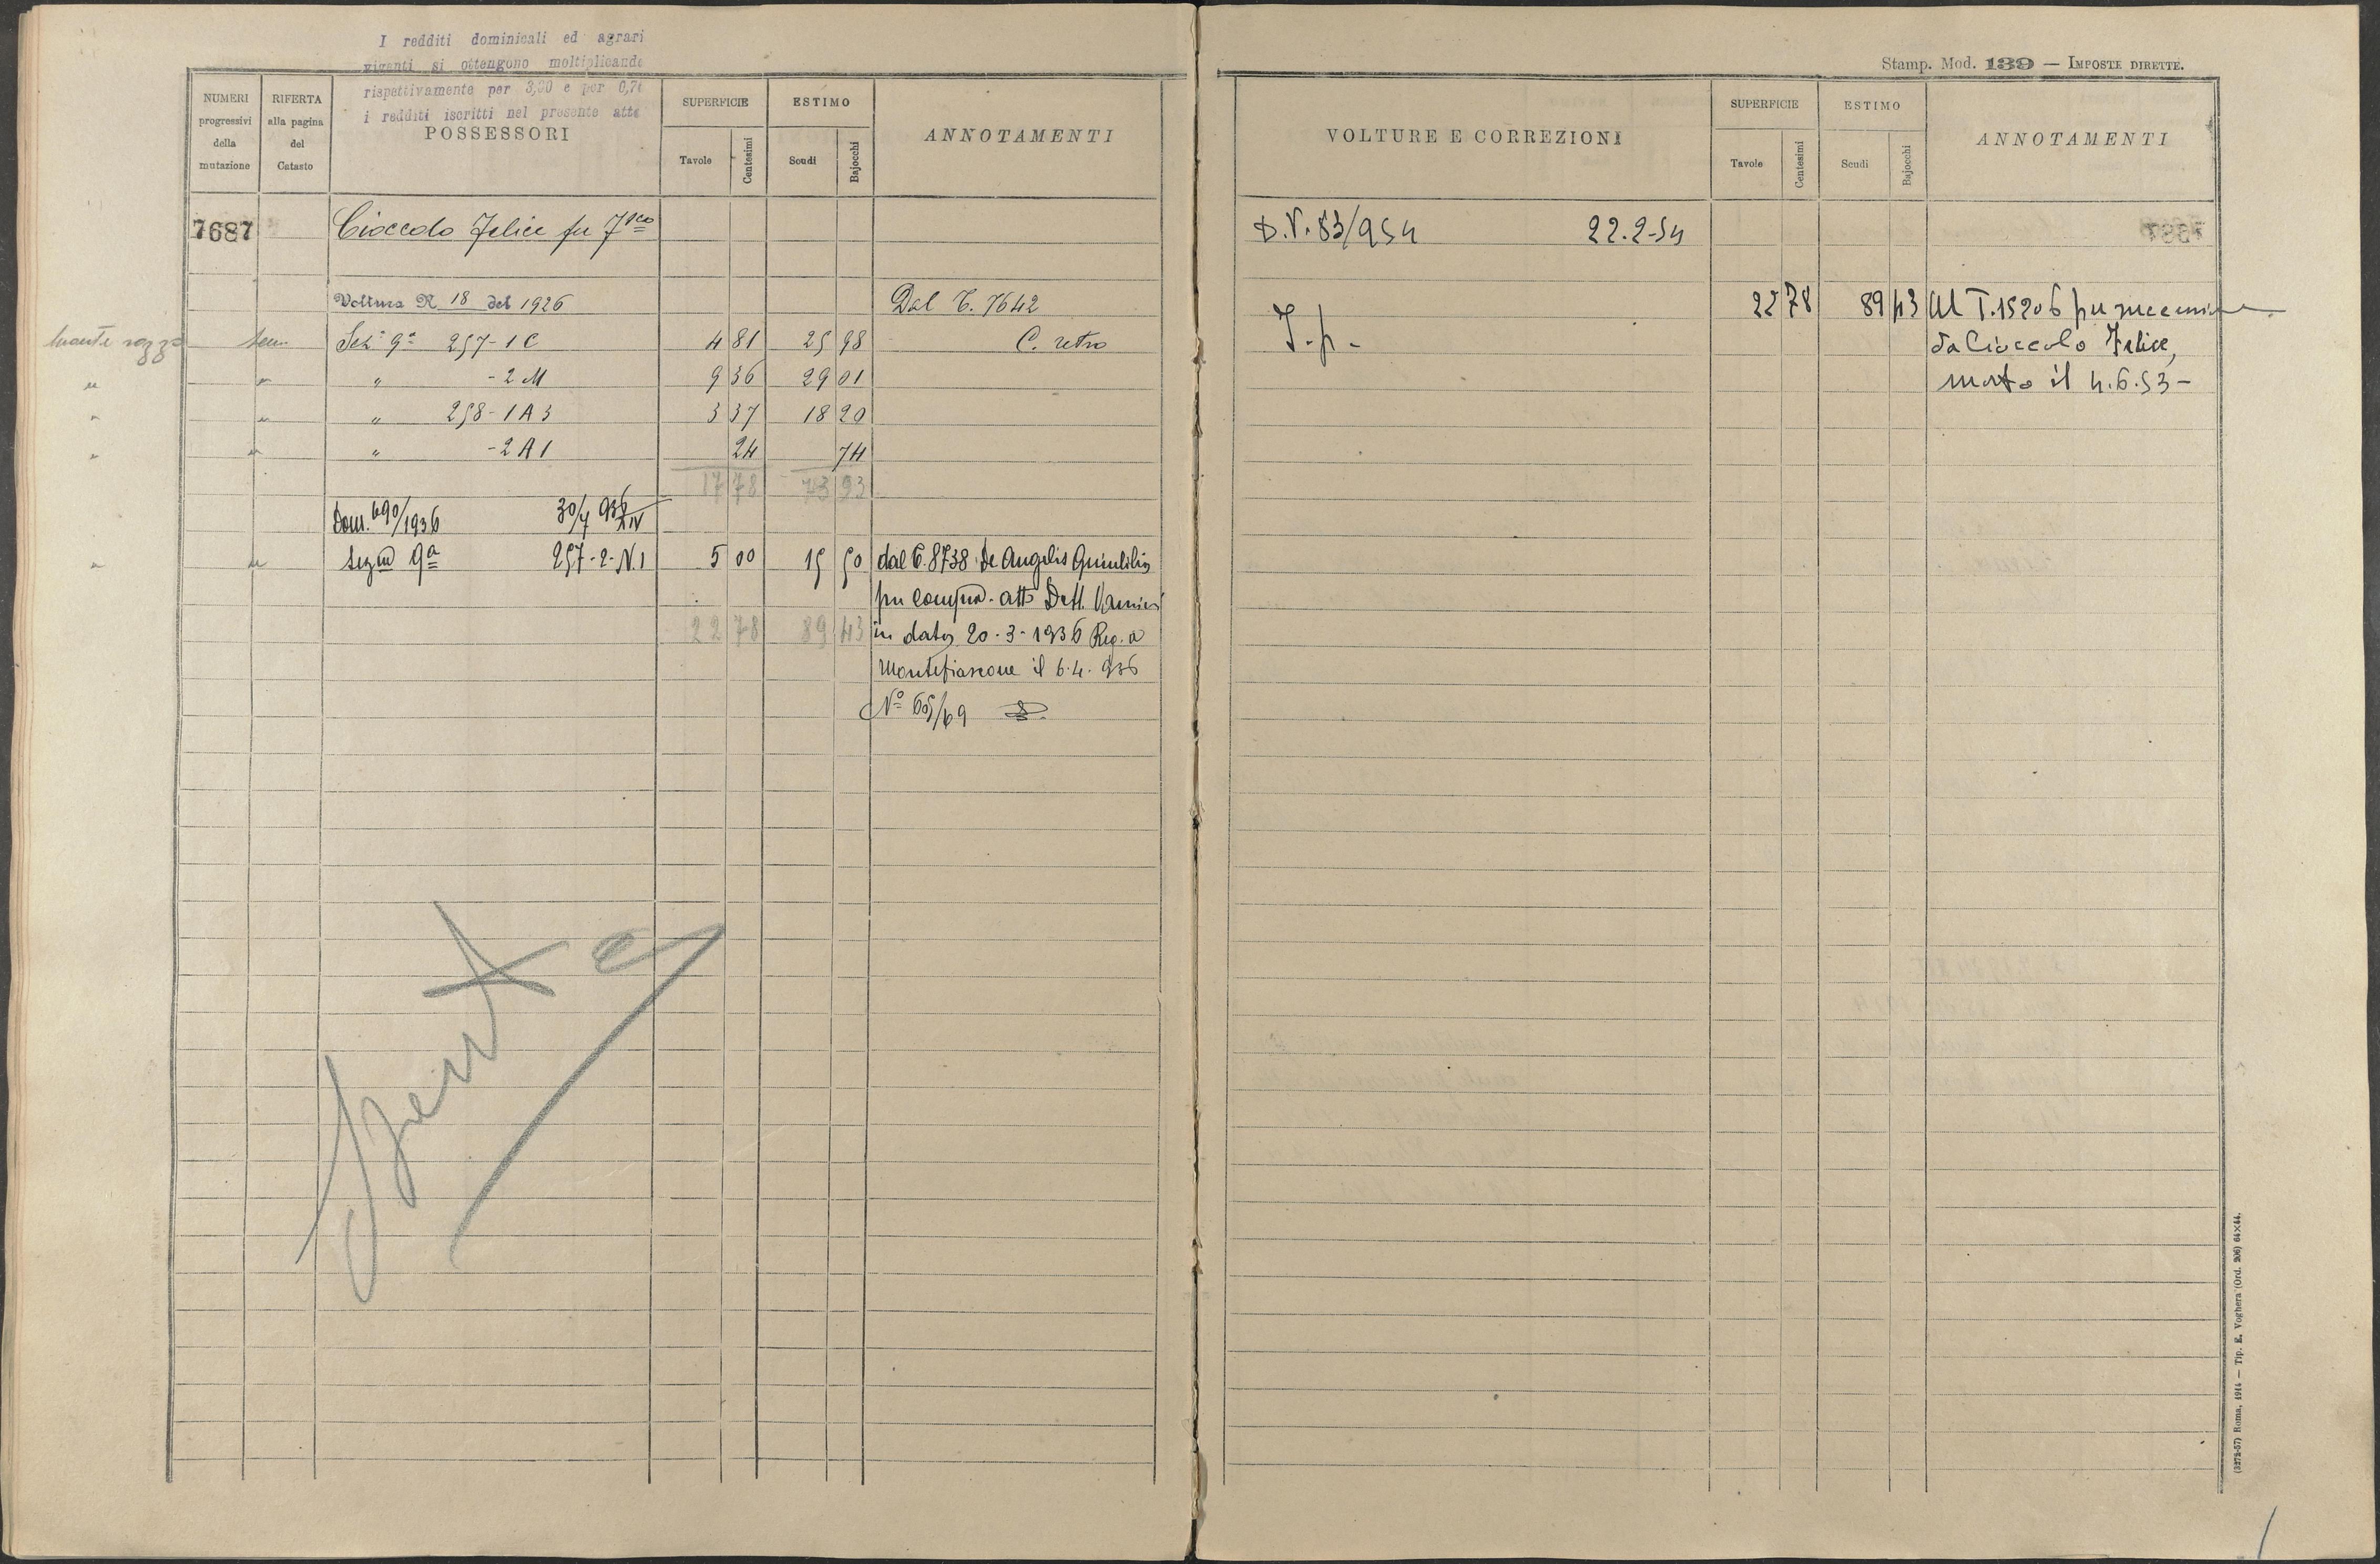 I redditi dominicali ed agrari
rispettivamente per 3,00 e per 0,7
i redditi iscritti nel presente atto
NUMERI progressivi della mutazione
RIFERTA alla pagina del Catasto
POSSESSORI
SUPERFICIE
Tavole Centesimi
ESTIMO
Scudi Bajocchi
ANNOTAMENTI
7687 Cioccolo Felice fu
Voltura N 18 del 1926 Dal T. 7642
Monte Sez. 9ª 257-1C 4 81 25 98 C. retro
" -2 M 9 36 29 01
" 258-1A3 3 37 18 20
" -2 A1 24 74
17 78 73 93
Dom. 690/1936 30/7 936 XIV
Sezne 9ª 257-2-N.1 5 00 15 50 dal T. 8738 De Angelis
22 78 89 43
in data 20-3-1936 Reg. a
Montefiascone il 6.4.936
Nº 65/69
Stamp. Mod. 139 — IMPOSTE DIRETTE.
VOLTURE E CORREZIONI
SUPERFICIE
Tavole Centesimi
ESTIMO
Scudi Bajocchi
ANNOTAMENTI
D.V. 53/954 22.2-54
I.p.- 22 78 89 43 Al T. 15206 per
da Cioccolo Felice,
morto il 4.6.53-
Spenta
(3272-57) Roma, 1914 — Tip. E. Voghera (Ord. 206) 64×44.